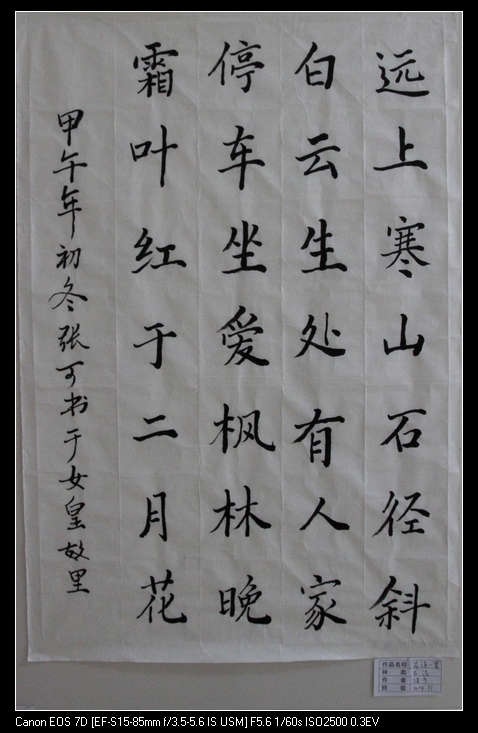 远上寒山石径斜
白云生处有人家
停车坐爱枫林晚
霜叶红于二月花
甲午年初冬张可书于女皇故里
作品名称
种类
作者
班级
Canon EOS 7D [EF-S15-85mm f/3.5-5.6 IS USM] F5.6 1/60s ISO2500 0.3EV